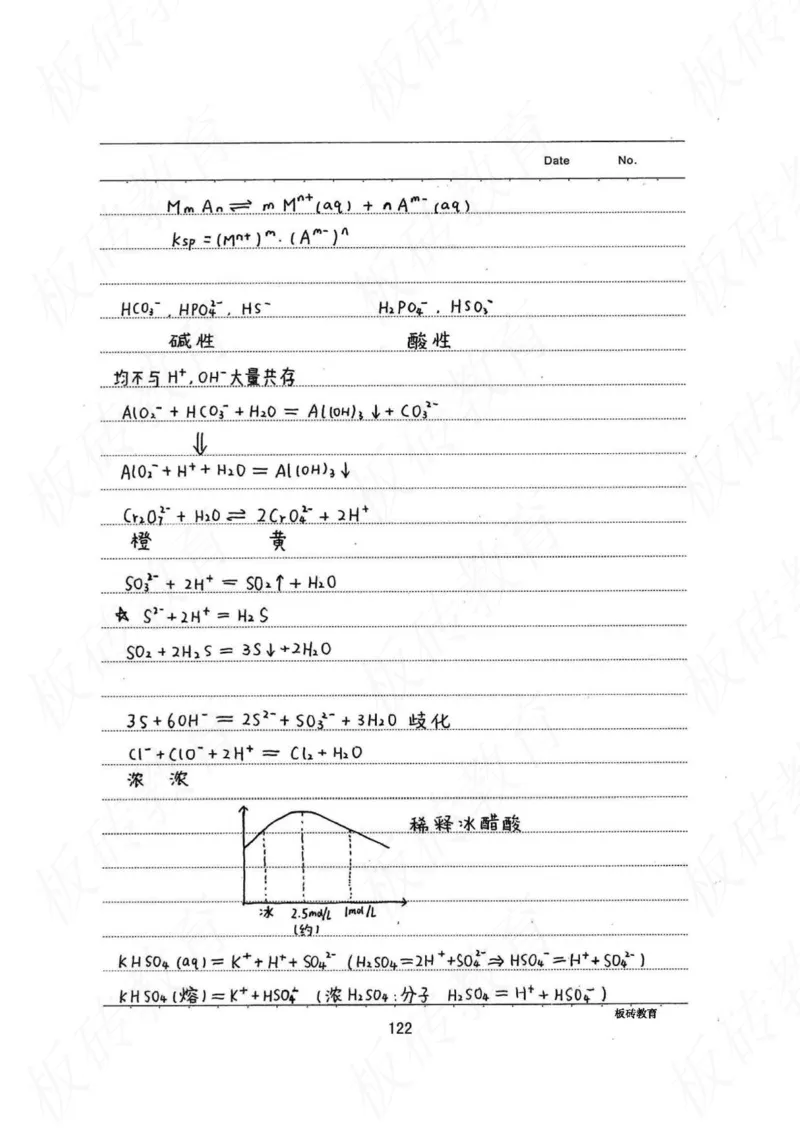 Date No.
MmAn ⇌ m Mⁿ⁺(aq) + n Aᵐ⁻(aq)
Ksp = (Mⁿ⁺)ᵐ · (Aᵐ⁻)ⁿ
HCO₃⁻, HPO₄²⁻, HS⁻ H₂PO₄⁻, HSO₃⁻
碱性 酸性
均不与 H⁺, OH⁻大量共存
AlO₂⁻ + HCO₃⁻ + H₂O = Al(OH)₃↓ + CO₃²⁻
⇓
AlO₂⁻ + H⁺ + H₂O = Al(OH)₃↓
Cr₂O₇²⁻ + H₂O ⇌ 2CrO₄²⁻ + 2H⁺
橙 黄
SO₃²⁻ + 2H⁺ = SO₂↑ + H₂O
☆ S²⁻ + 2H⁺ = H₂S
SO₂ + 2H₂S = 3S↓ + 2H₂O
3S + 6OH⁻ = 2S²⁻ + SO₃²⁻ + 3H₂O 歧化
Cl⁻ + ClO⁻ + 2H⁺ = Cl₂ + H₂O
浓 浓
稀释冰醋酸
冰 2.5mol/L 1mol/L
(约)
KHSO₄(aq) = K⁺ + H⁺ + SO₄²⁻ (H₂SO₄ = 2H⁺ + SO₄²⁻ ⇒ HSO₄⁻ = H⁺ + SO₄²⁻)
KHSO₄(熔) = K⁺ + HSO₄⁻ (浓H₂SO₄: 分子 H₂SO₄ = H⁺ + HSO₄⁻)
板砖教育
122